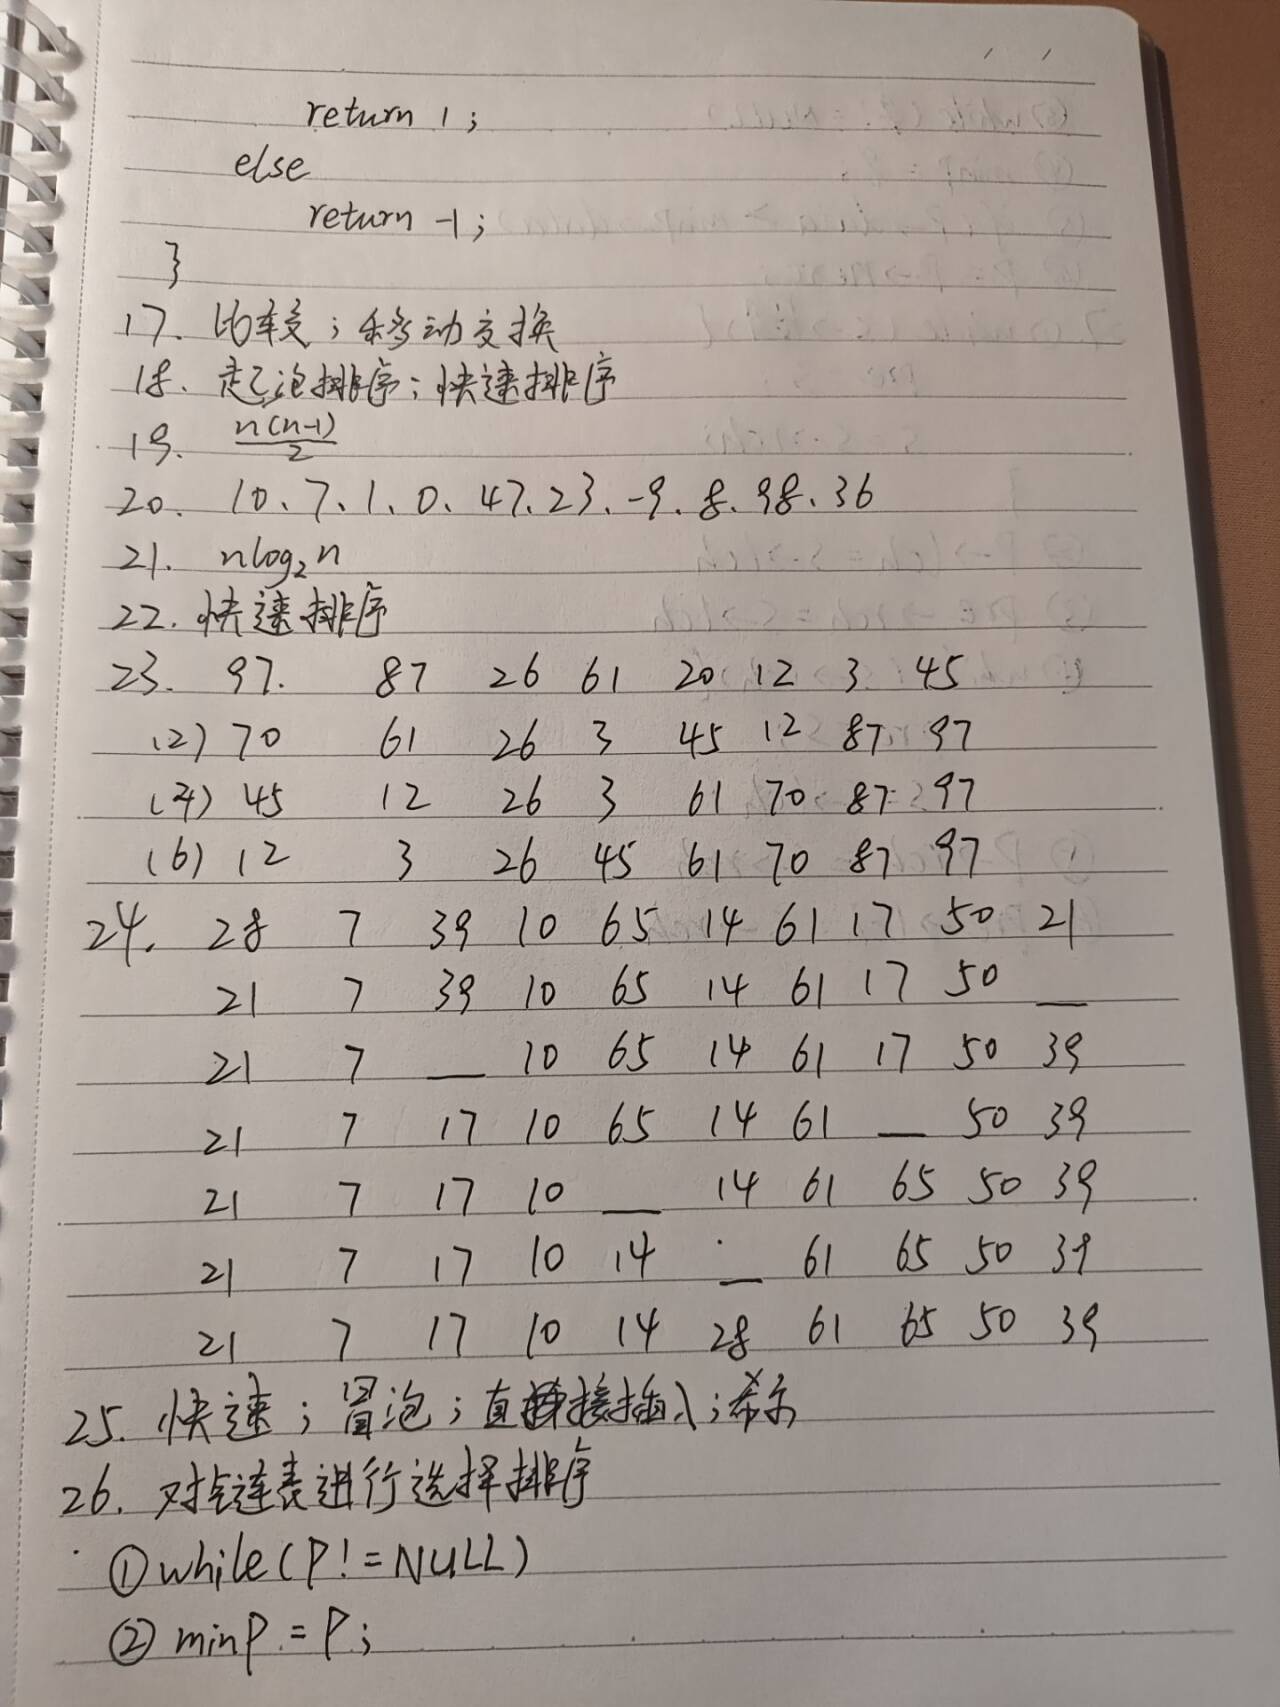 return 1;
else
return -1;
}
17. 比较；移动交换
18. 起泡排序；快速排序
19. n(n-1)/2
20. 10、7、1、0、47、23、-9、8、98、36
21. nlog₂n
22. 快速排序
23. 97. 87 26 61 20 12 3 45
(2) 70 61 26 3 45 12 87 97
(4) 45 12 26 3 61 70 87 97
(6) 12 3 26 45 61 70 87 97
24. 28 7 39 10 65 14 61 17 50 21
21 7 39 10 65 14 61 17 50 __
21 7 __ 10 65 14 61 17 50 39
21 7 17 10 65 14 61 __ 50 39
21 7 17 10 __ 14 61 65 50 39
21 7 17 10 14 __ 61 65 50 39
21 7 17 10 14 28 61 65 50 39
25. 快速；冒泡；直接插入；希尔
26. 对链表进行选择排序
①while(P!=NULL)
②minP=P;